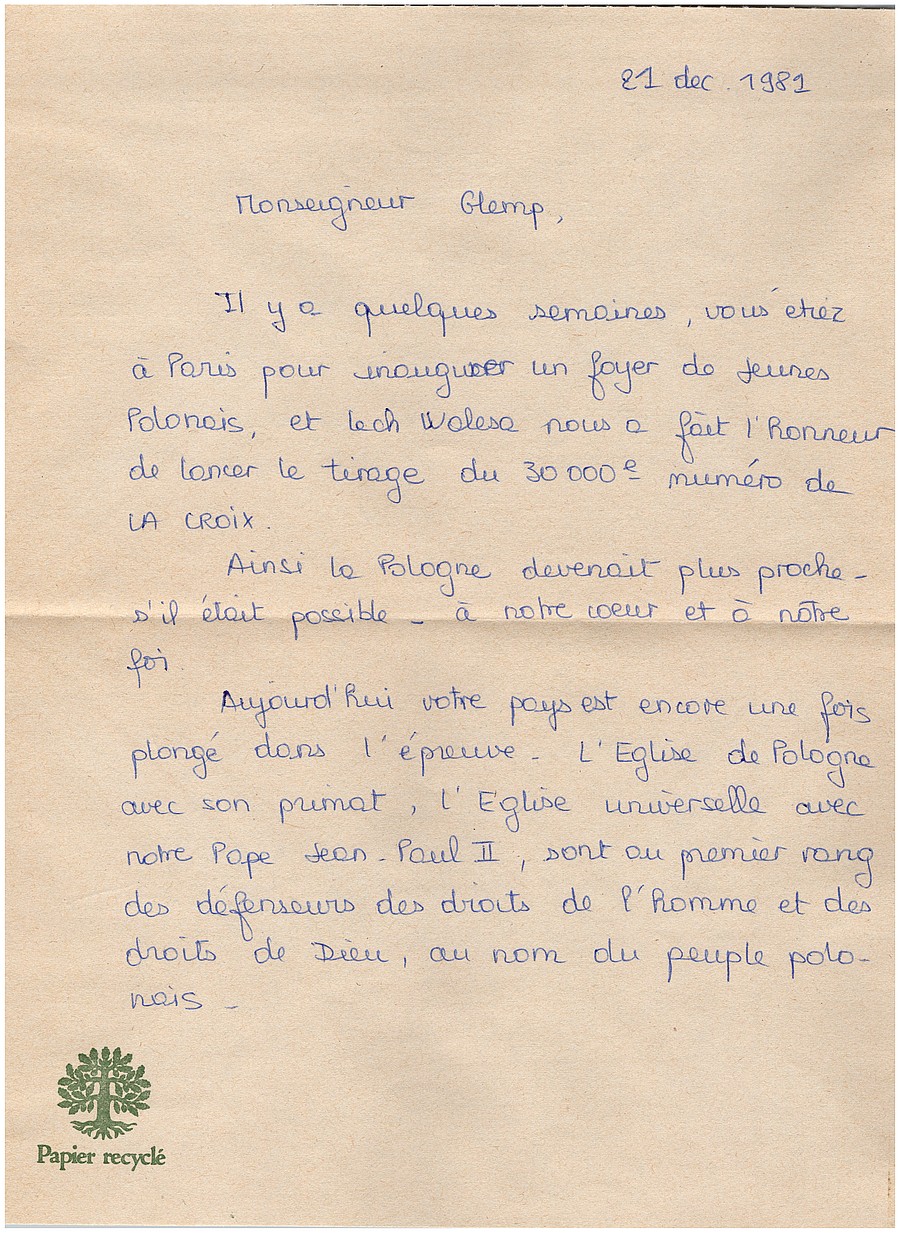 21 dec. 1981
Monseigneur Glemp,
Il y a quelques semaines, vous étiez
à Paris pour inaugurer un foyer de Jeunes
Polonais, et Lech Walesa nous a fait l'honneur
de lancer le tirage du 30 000e numéro de
LA CROIX.
Ainsi la Pologne devenait plus proche -
s'il était possible - à notre coeur et à nôtre
foi.
Aujourd'hui votre pays est encore une fois
plongé dans l'épreuve - L'Eglise de Pologne
avec son primat, l'Eglise universelle avec
notre Pape Jean-Paul II, sont au premier rang
des défenseurs des droits de l'homme et des
droits de Dieu, au nom du peuple polo-
nais -
Papier recyclé